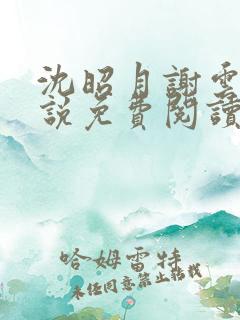 沈昭月謝雲
說免費閱讀
哈姆雷特
未经同意禁止转载